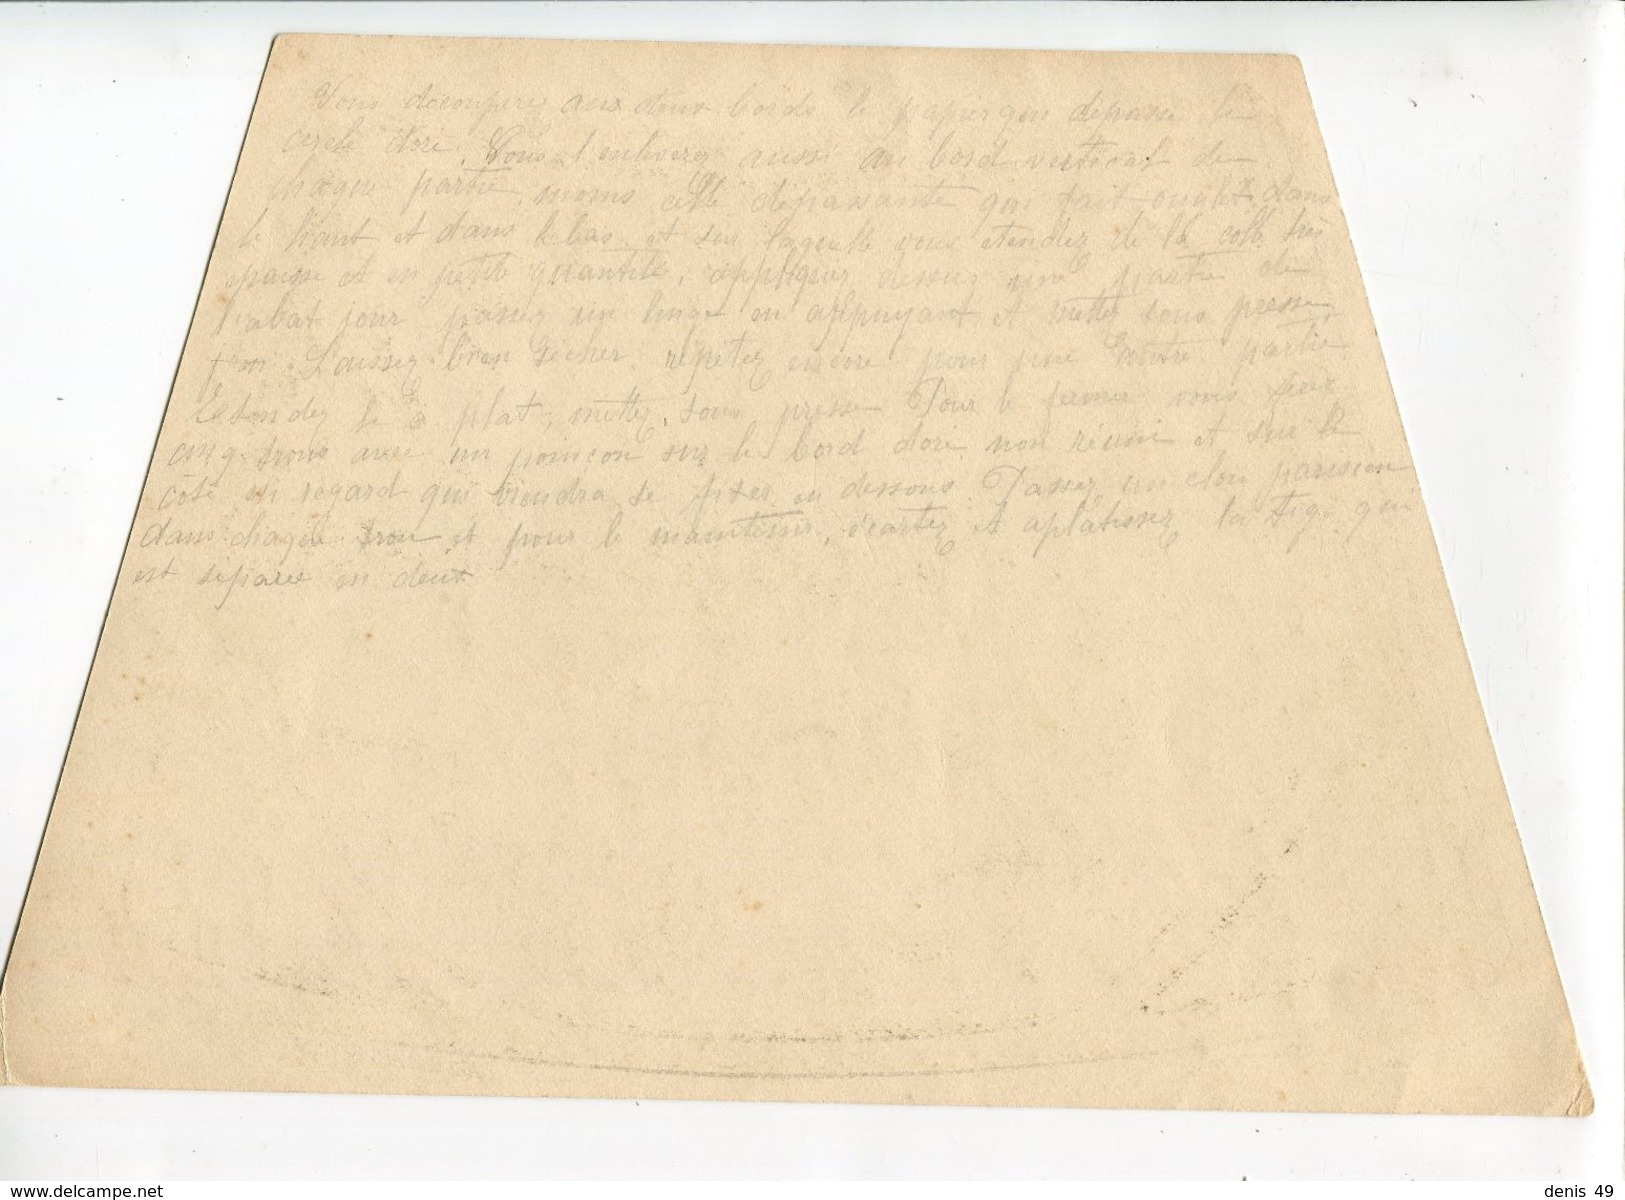 Vous découperez aux deux bords le papier qui dépasse le
cercle doré. Vous l'enleverez aussi au bord vertical de
chaque partie, moins celle dépassante qui fait onglet dans
le haut et dans le bas, et sur laquelle vous étendez de la colle très
épaisse et en petite quantité, appliquez dessus une partie de
l'abat jour, passez un linge en appuyant et mettez sous presse
Laissez bien sécher. répétez encore pour partie
le plat, mettez sous presse Pour le fermer vous
cinq trous avec un poinçon sur le bord doré non réuni et sur le
côté en regard qui viendra se fixer en dessous. Passez un clou parisien
dans chaque trou et pour le maintenir, écartez et aplatissez la tige qui
est séparée en deux
www.delcampe.net
denis_49